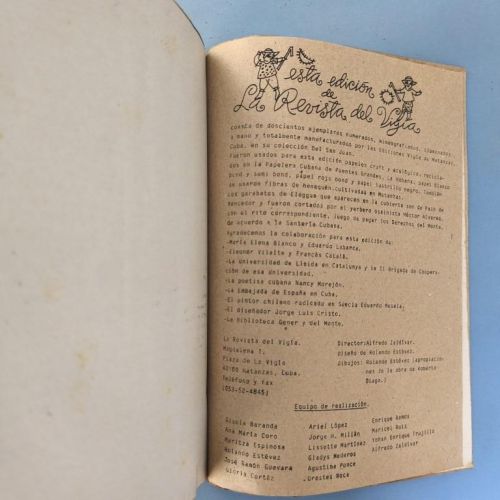 esta edición
de
La Revista del Vigía
consta de doscientos ejemplares numerados, mimeografiados, iluminados
a mano y totalmente manufacturados por las Ediciones Vigía de Matanzas,
Cuba, en su colección Del San Juan.
Fueron usados para esta edición papeles craft y ecológico, recicla-
dos en la Papelera Cubana de Puentes Grandes, La Habana, papel blanco
bond y semi bond, papel rojo bond y papel gastrillo negro. También
se usaron fibras de henequén cultivadas en Matanzas.
Los garabatos de Eleggua que aparecen en la cubierta son de Palo de
Vencedor y fueron cortados por el yerbero osainista Héctor Alvarez,
con el rito correspondiente, luego de pagar los Derechos del Monte,
de acuerdo a la Santería Cubana.
Agradecemos la colaboración para esta edición de:
-María Elena Blanco y Eduardo Labarca.
-Eleonor Vilalta y Francés Català.
-La Universidad de Lleida en Catalunya y la II Brigada de Coopera-
ción de esa Universidad.
-La poetisa cubana Nancy Morejón.
-La Embajada de España en Cuba.
-El pintor chileno radicado en Suecia Eduardo
-El diseñador Jorge Luis Cristo.
-La Biblioteca Gener y del Monte.
La Revista del Vigía.
Magdalena 1,
Plaza de La Vigía
40100 Matanzas, Cuba.
Teléfono y fax
(053-52-4845)
Director: Alfredo Zaldívar.
diseño de Rolando Estévez.
dibujos: Rolando Estévez (apropiación-
nes de la obra de Roberto
Diago.)
Equipo de realización.
Gisela Baranda
Ana María Coro
Maritza Espinosa
Rolando Estévez
José Ramón Guevara
Gloria Cortéz
Ariel López
Jorge H. Milián
Lissette Martínez
Gladys Mederos
Agustina Ponce
Orestes Bock
Enrique Ramos
Maricel Ruiz
Yohan Enrique Trujillo
Alfredo Zaldívar